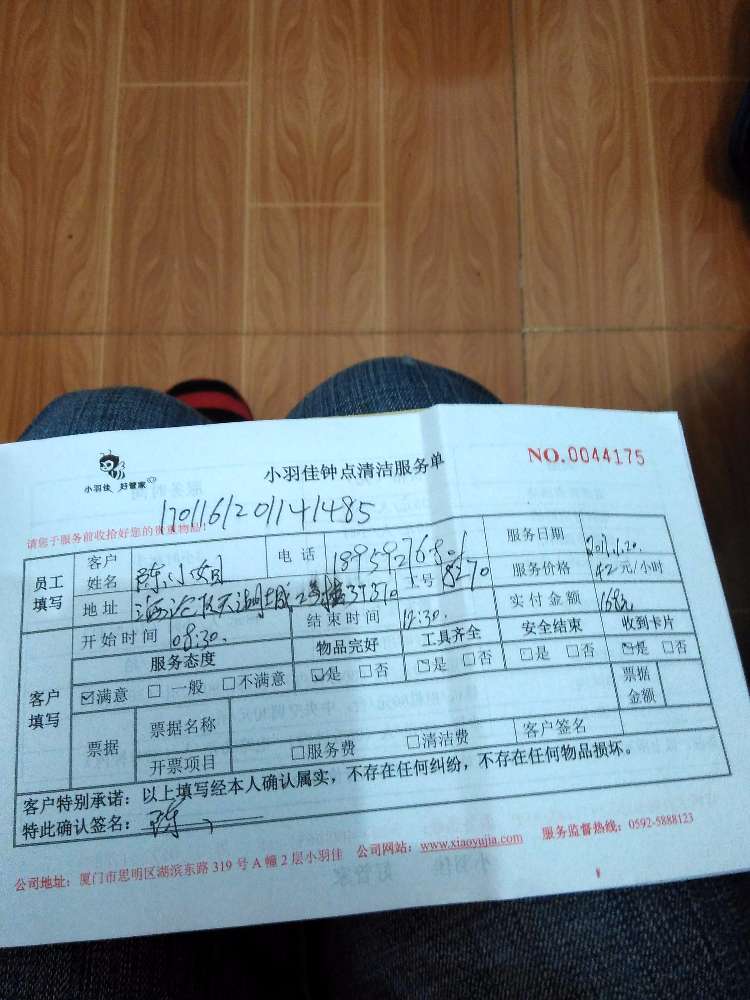 小羽佳 好管家
小羽佳钟点清洁服务单
NO.0044175
170116201141485
请您于服务前收拾好您的贵重物品！
员工填写 客户姓名 陈小姐 电话 服务日期
地址 工号 8270 服务价格 42元/小时
开始时间 08:30. 结束时间 12:30. 实付金额 168元
客户填写 服务态度 物品完好 工具齐全 安全结束 收到卡片
☑满意 □一般 □不满意 ☑是 □否 ☑是 □否 □是 □否 ☑是 □否
票据 票据名称 票据金额
开票项目 □服务费 □清洁费 客户签名
客户特别承诺：以上填写经本人确认属实，不存在任何纠纷，不存在任何物品损坏。
特此确认签名： 陈
公司地址：厦门市思明区湖滨东路 319 号 A 幢 2 层小羽佳 公司网站：www.xiaoyujia.com 服务监督热线：0592-5888123